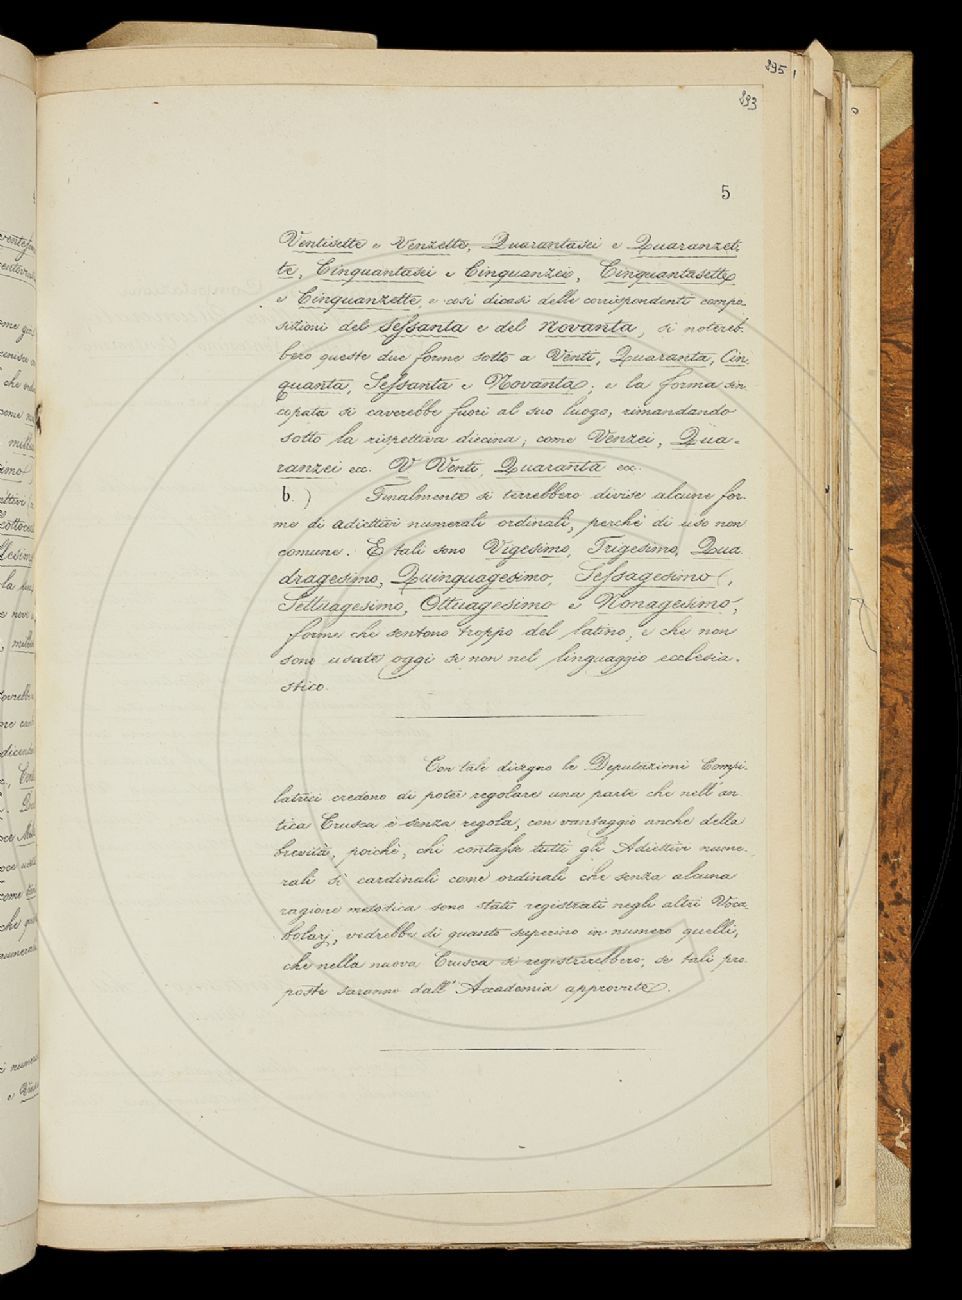 895
893
5
Ventisette e Venzette, Quarantasei e Quaranzet-
te, Cinquantasei e Cinquanzei, Cinquantasette
e Cinquanzette, e così dicasi delle corrispondenti compo-
sizioni del Sessanta e del Novanta, si notereb-
bero queste due forme sotto a Venti, Quaranta, Cin
quanta, Sessanta e Novanta; e la forma sin-
copata si caverebbe fuori al suo luogo, rimandando
sotto la rispettiva diecina; come Venzei, Qua-
ranzei ec. V. Venti, Quaranta ec.
b.) Finalmente si terrebbero divise alcune for-
me di adiettivi numerali ordinali, perchè di uso non
comune. E tali sono Vigesimo, Trigesimo, Qua
dragesimo, Quinquagesimo, Sessagesimo,
Settuagesimo, Ottuagesimo e Nonagesimo,
forme che sentono troppo del latino, e che non
sono usate oggi se non nel linguaggio ecclesia-
stico.
Con tale disegno le Deputazioni Compi-
latrici credono di poter regolare una parte che nell'an
tica Crusca è senza regola, con vantaggio anche della
brevità, poichè, chi contasse tutti gli Adiettivi nume-
rali sì cardinali come ordinali che senza alcuna
ragione metodica sono stati registrati negli altri Voca-
bolarj, vedrebbe di quanto superino in numero quelli,
che nella nuova Crusca si registrerebbero, se tali pro
poste saranno dall'Accademia approvate.